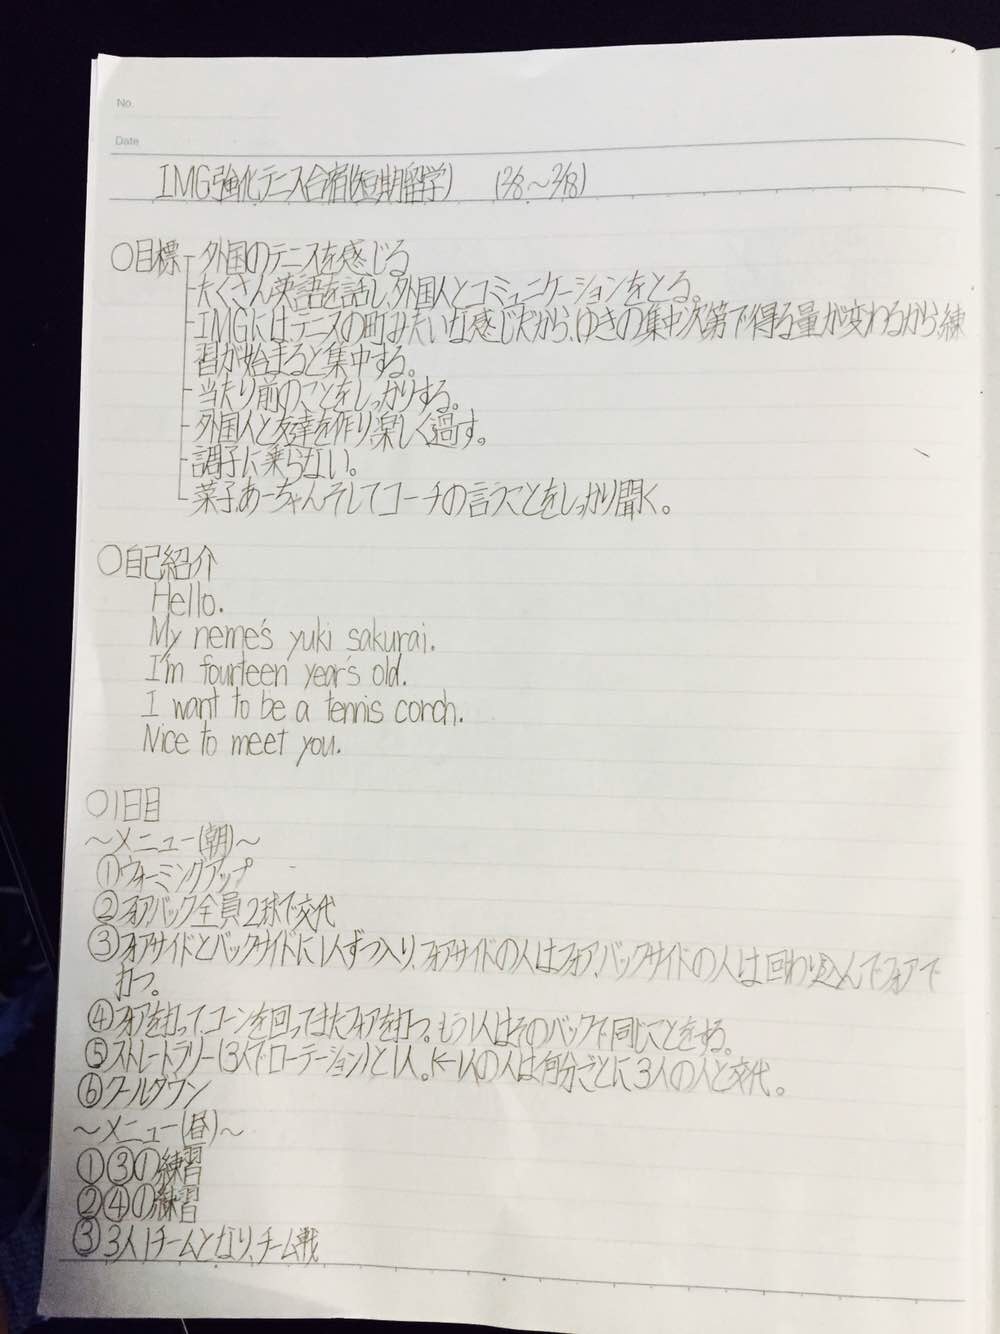 No.
Date
IMG強化テニス合宿(短期留学) (2/8～2/18)
○目標 外国のテニスを感じる
たくさん英語を話し、外国人とコミュニケーションをとる。
IMGにはテニスの町みたいな感じだから、ゆきの集中次第で得る量が変わるから、練
習が始まると集中する。
当たり前のことをしっかりする。
外国人と友達を作り楽しく過す。
調子に乗らない。
菜子、あーちゃんそしてコーチの言うことをしっかり聞く。
○自己紹介
Hello.
My neme's yuki sakurai.
I'm fourteen year's old.
I want to be a tennis corch.
Nice to meet you.
○1日目
～メニュー(朝)～
①ウォーミングアップ
②フォアバック全員2球で交代
③フォアサイドとバックサイドに1人ずつ入り、フォアサイドの人はフォア、バックサイドの人は回わり込んでフォアで
打つ。
④フォアを打って、コーンを回ってまたフォアを打つ。もう1人はそのバックで同じことをする。
⑤ストレートラリー(3人でローテーション)と1人。の人は何分ごとに、3人の人と交代。
⑥クールダウン
～メニュー(昼)～
①③の練習
②④の練習
③3人1チームとなり、チーム戦